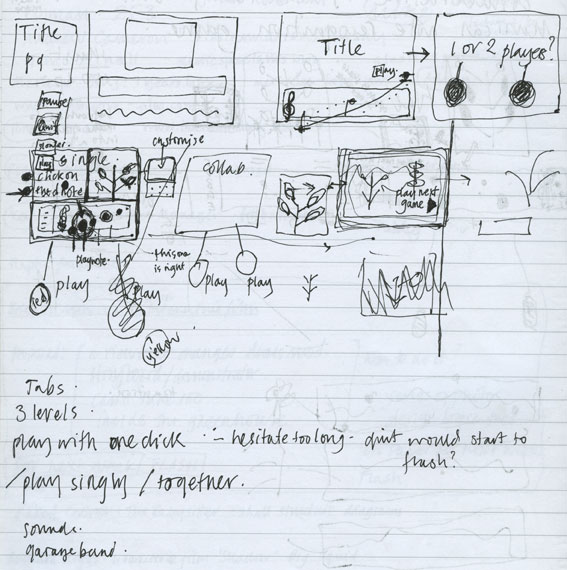 Title
pg
Title
play.
1 or 2 players?
single
click on
customise
collab.
play next
game
playnote
this one
is right
play
play
play
play
red
yellow
Tabs.
3 levels.
play with one click
hesitate too long - would start to
flash?
/play singly / together.
sounds.
garageband.